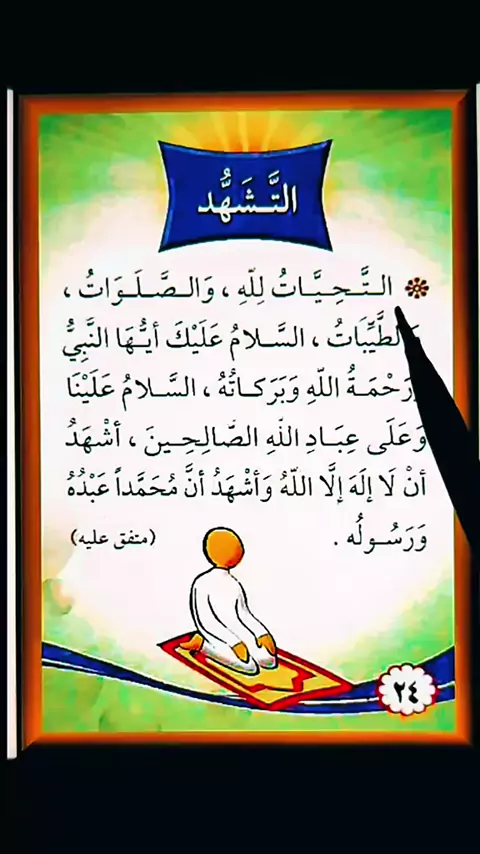 التَّـشَهُّد
التَّـحِـيَّـاتُ لِلّٰهِ ، وَالـصَّـلَـوَاتُ ،
وَالطَّيِّبَاتُ ، السَّـلَامُ عَلَيْكَ أَيُّـهَا النَّبِيُّ
وَرَحْمَـةُ اللّٰهِ وَبَرَكـاتُهُ ، السَّـلَامُ عَلَيْنَا
وَعَلَى عِبَـادِ اللّٰهِ الصَّـالِحِـينَ ، أَشْهَدُ
أَنْ لَا إِلَهَ إِلَّا اللّٰهُ وَأَشْهَدُ أَنَّ مُحَمَّداً عَبْدُهُ
وَرَسُـولُه .
(متفق عليه)
٢٤